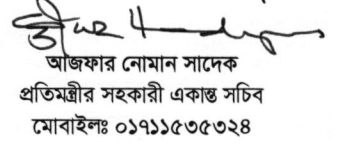 আজফার নোমান সাদেক
প্রতিমন্ত্রীর সহকারী একান্ত সচিব
মোবাইলঃ ০১৭১১৫৩৫৩২৪